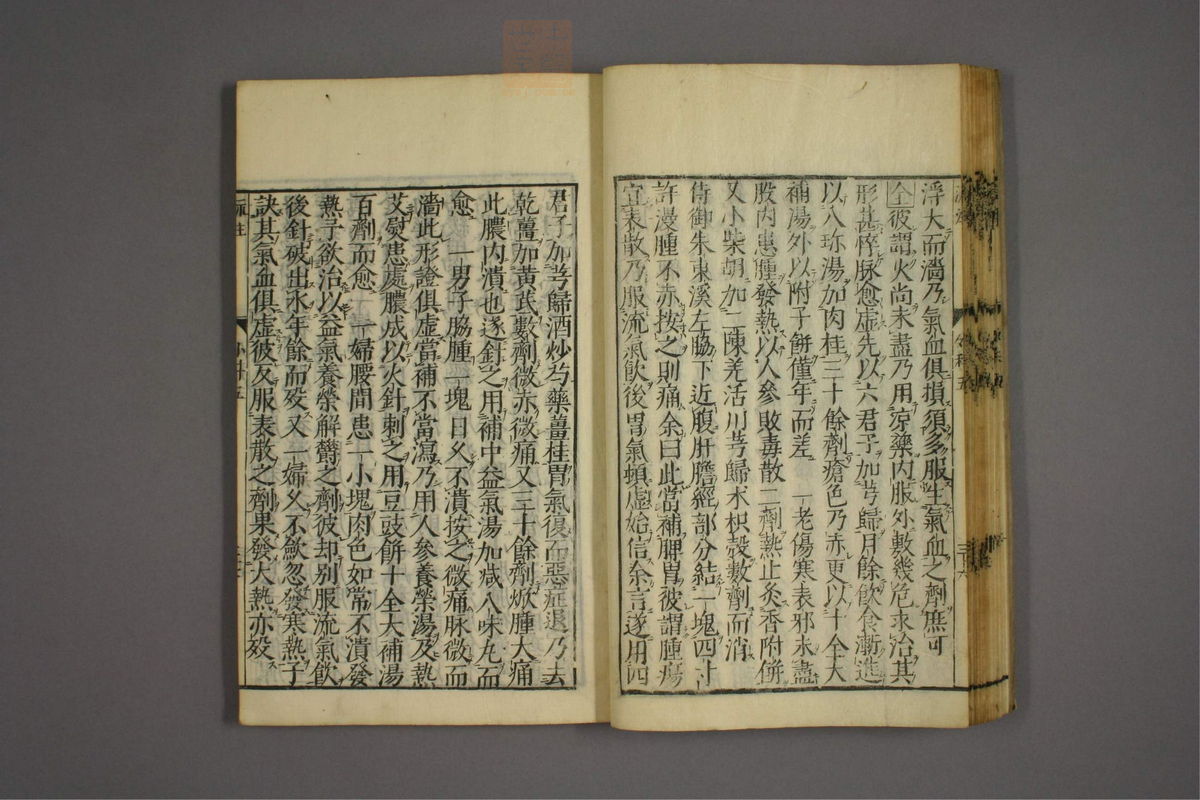 浮大而濇乃氣血俱損須多服生氣血之劑庶可
全彼謂火尚未盡乃用涼藥內服外敷幾危求治其
形甚悴脉愈虛先以六君子加芎歸月餘飲食漸進
以八珎湯加肉桂三十餘劑瘡色乃赤更以十全大
補湯外以附子餅僅年而差 一老傷寒表邪未盡
股內患腫發熱以人參敗毒散二劑熱止灸香附餅
又小柴胡加二陳羌活川芎歸术枳殼數劑而消
侍御朱東溪左脇下近腹肝膽經部分結一塊四寸
許漫腫不赤按之則痛余曰此當補脾胃彼謂腫瘍
宜表散乃服流氣飲後胃氣頓虛始信余言遂用四
君子加芎歸酒炒芍藥薑桂胃氣復而惡症退乃去
乾薑加黃茋數劑微赤微痛又三十餘劑焮腫大痛
此膿內潰也遂針之用補中益氣湯加减八味丸而
愈 一男子脇腫一塊日久不潰按之微痛脉微而
濇此形證俱虛當補不當瀉乃用人參養榮湯及熱
艾熨患處膿成以火針刺之用豆豉餅十全大補湯
百劑而愈 一婦腰間患一小塊肉色如常不潰發
熱予欲治以益氣養榮解鬱之劑彼却別服流氣飲
後針破出水年餘而歿又一婦久不斂忽發寒熱予
訣其氣血俱虛彼反服表散之劑果發大熱亦歿